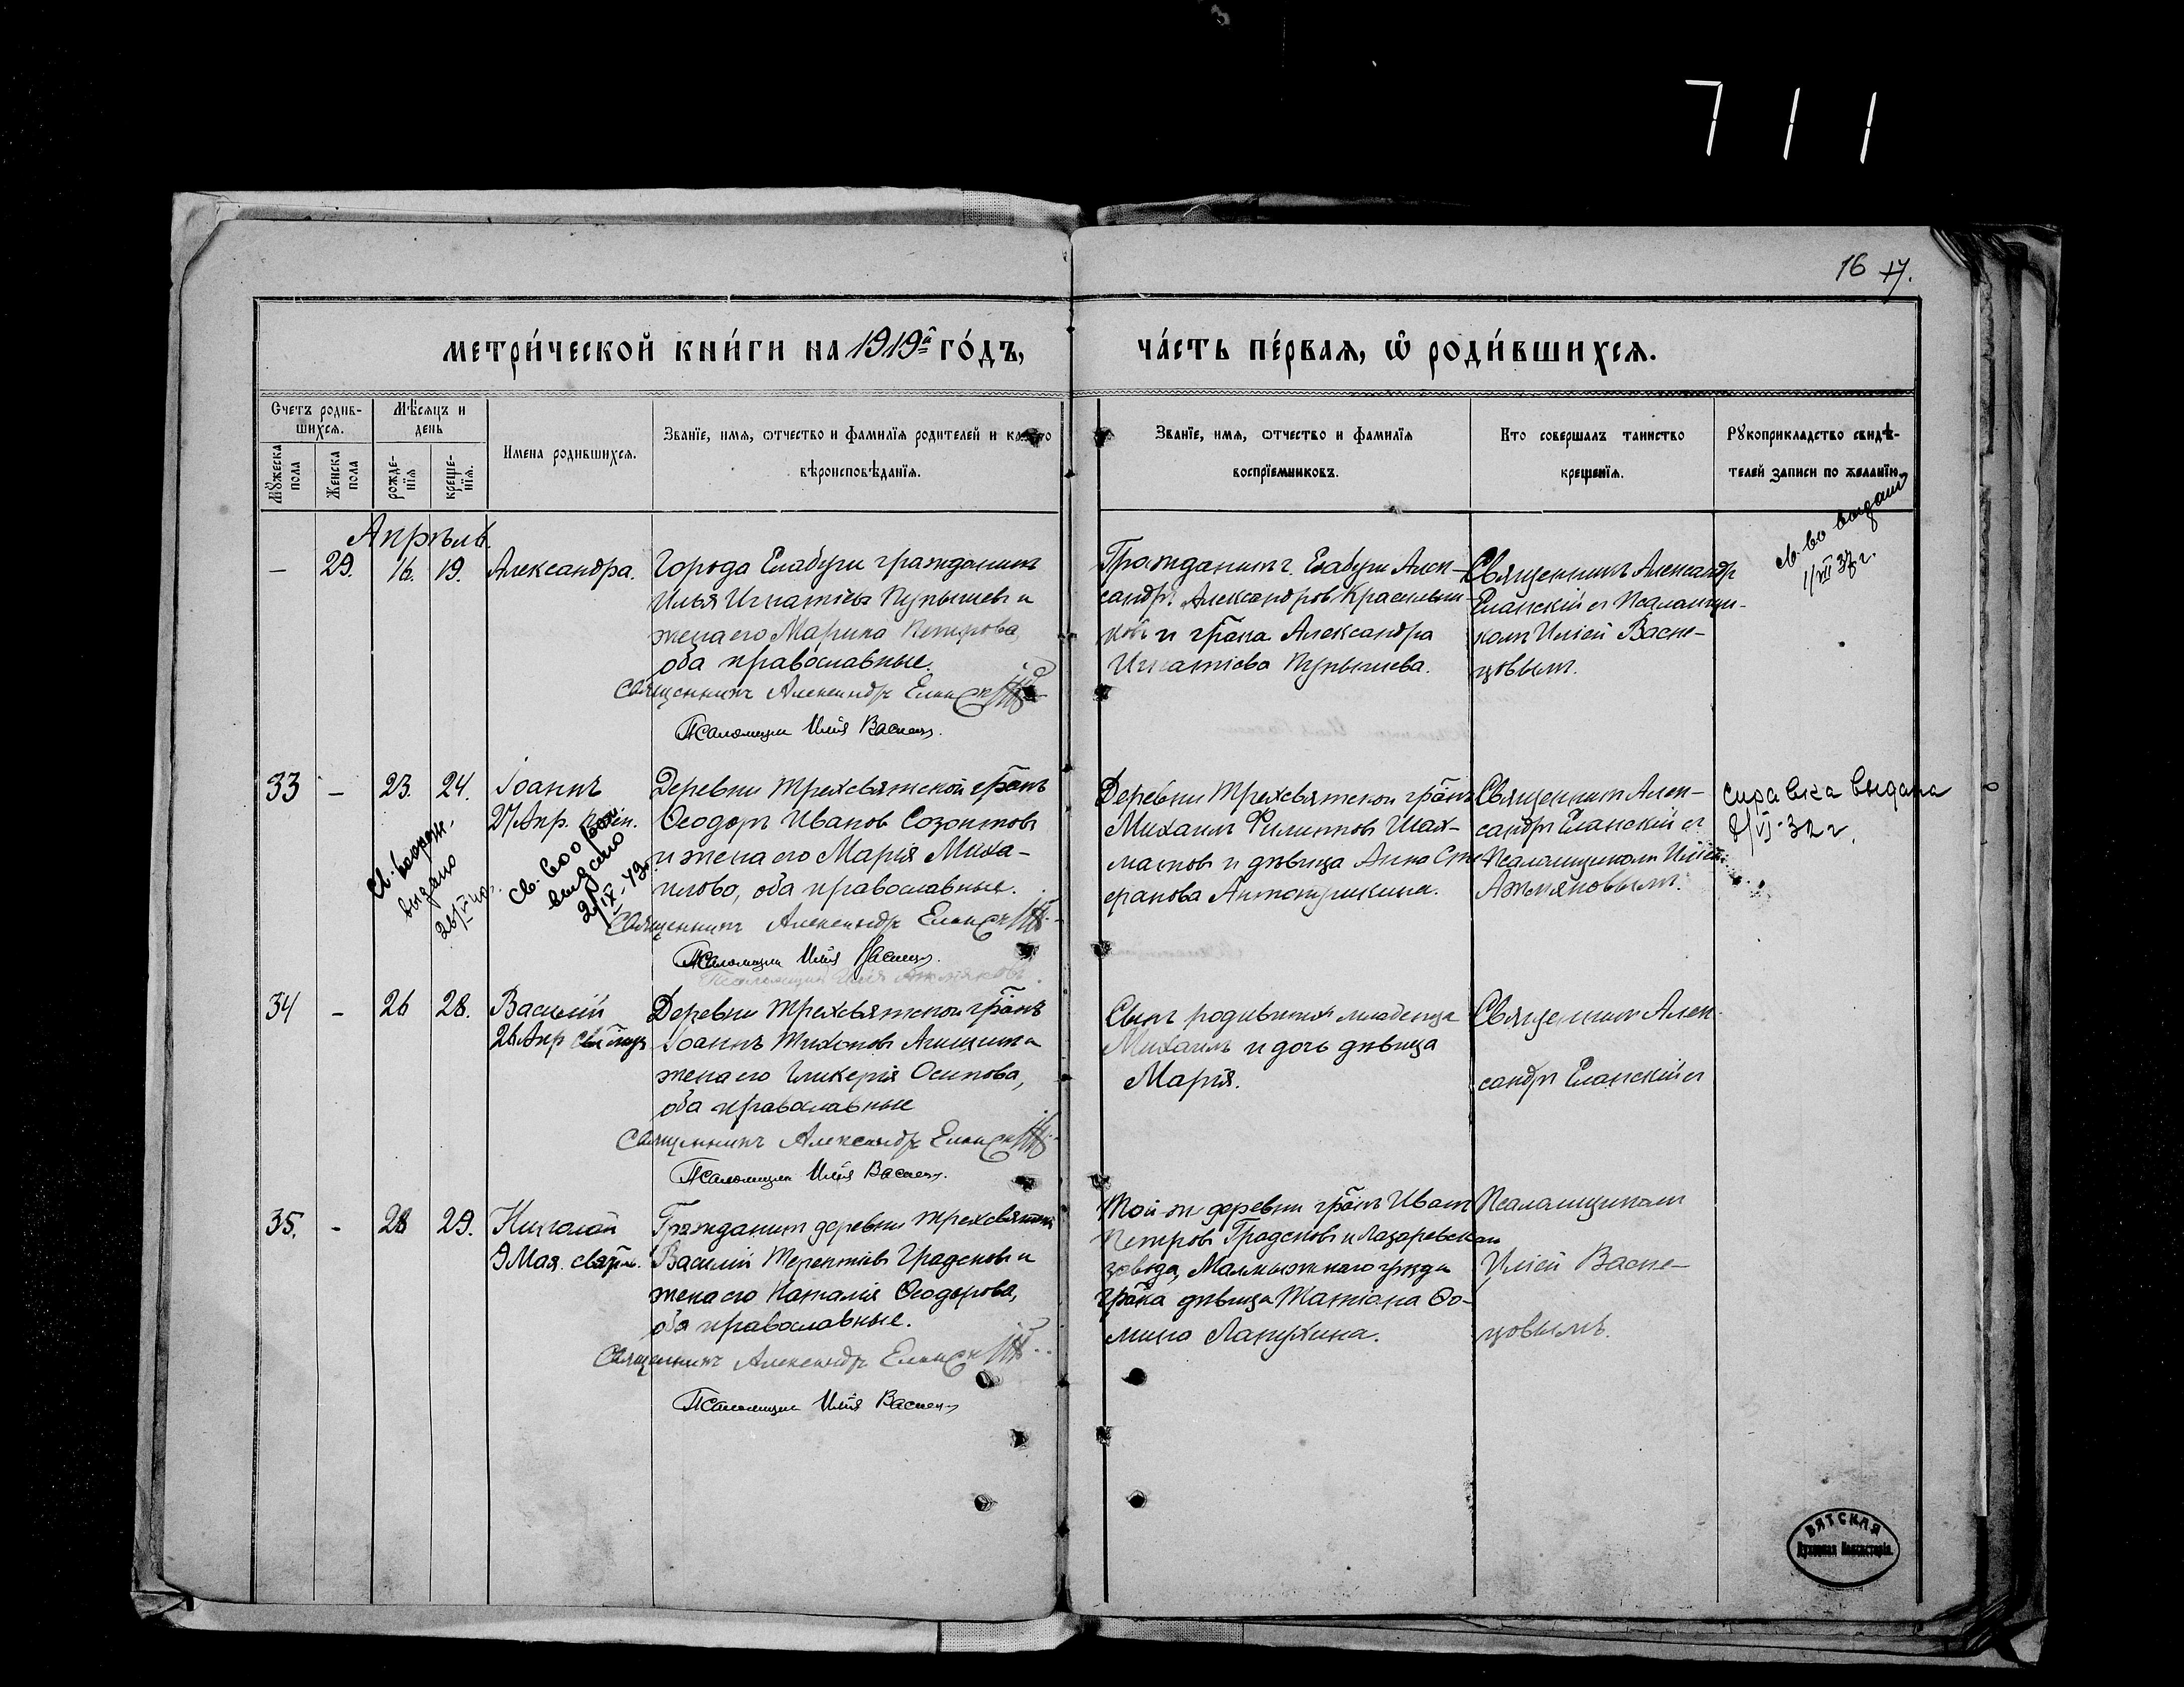 711
16 17.
метри́ческой кни́ги на 1919й го́дъ,
ча́сть пе́рвая, ѿ роди́вшихся.
Счетъ родив-
шихся.
Мѣсяцъ и
день
Мужеска пола
Женска пола
рожде-
нія
креще-
нія.
Имена родившихся.
Званїе, имя, отчество и фамилїя родителей и какого
вѣроисповѣданїя.
Званїе, имя, отчество и фамилїя
воспрїемниковъ.
Кто совершалъ таинство
крещенїя.
Рукоприкладство свидѣ-
телей записи по желанїю
Апрѣль.
– 29. 16. 19. Александра.
Города Елабуги гражданинъ
Илья Игнатіевъ Пупышевъ и
жена его Марина Петрова,
оба православные.
Священникъ Александръ Еланскій
Псаломщикъ Илія Васнец.
Гражданинъ г. Елабуги Алек-
сандръ Александровъ Красильни-
ковъ и гр̃ана Александра
Игнатіева Пупышева.
Священникъ Александръ
Еланскій съ Псаломщи-
комъ Иліей Васне-
цовымъ.
св-во выдано
1/VII 37 г.
33 – 23. 24. Іоаннъ
27 Апр.
св. во о рож.
выдано
26/V 40 г.
св. во о рож
выдано
2/IX-43
Деревни Трехсвятской гр̃анъ
Ѳеодоръ Ивановъ Созонтовъ
и жена его Марія Миха-
илова, оба православные.
Священникъ Александръ Еланскій
Псаломщикъ Илія Васнец.
Псаломщикъ Илія Ажмяковъ.
Деревни Трехсвятской гр̃анъ
Михаилъ Филиповъ Шах-
матовъ и дѣвица Анна Сте-
фанова
Священникъ Алек-
сандръ Еланскій съ
Псаломщикомъ Иліей
Ажмяковымъ.
Справка выдана
2/VI-32 г.
34 – 26 28. Василій
28 Апр
Деревни Трехсвятской гр̃анъ
Іоаннъ Тихоновъ и
жена его Гликерія Осипова,
оба православные
Священникъ Александръ Еланскій
Псаломщикъ Илія Васнец.
Сынъ родившихъ младенца
Михаилъ и дочь дѣвица
Марія.
Священникъ Алек-
сандръ Еланскій съ
35. – 28 29. Николай
9 Мая.
Гражданинъ деревни Трехсвятской
Василій Терентіевъ Градсковъ и
жена его Наталія Ѳеодорова,
оба православные.
Священникъ Александръ Еланскій
Псаломщикъ Илія Васнец
Той-же деревни гр̃анъ Иванъ
Петровъ Градсковъ и Лазаревскаго
завода, Малмыжскаго уѣзда
гр̃ана дѣвица Татіана Ѳо-
мина Лапухина.
Псаломщикомъ
Иліей Васне-
цовымъ.
ВЯТСКАЯ
Духовная Консисторія.